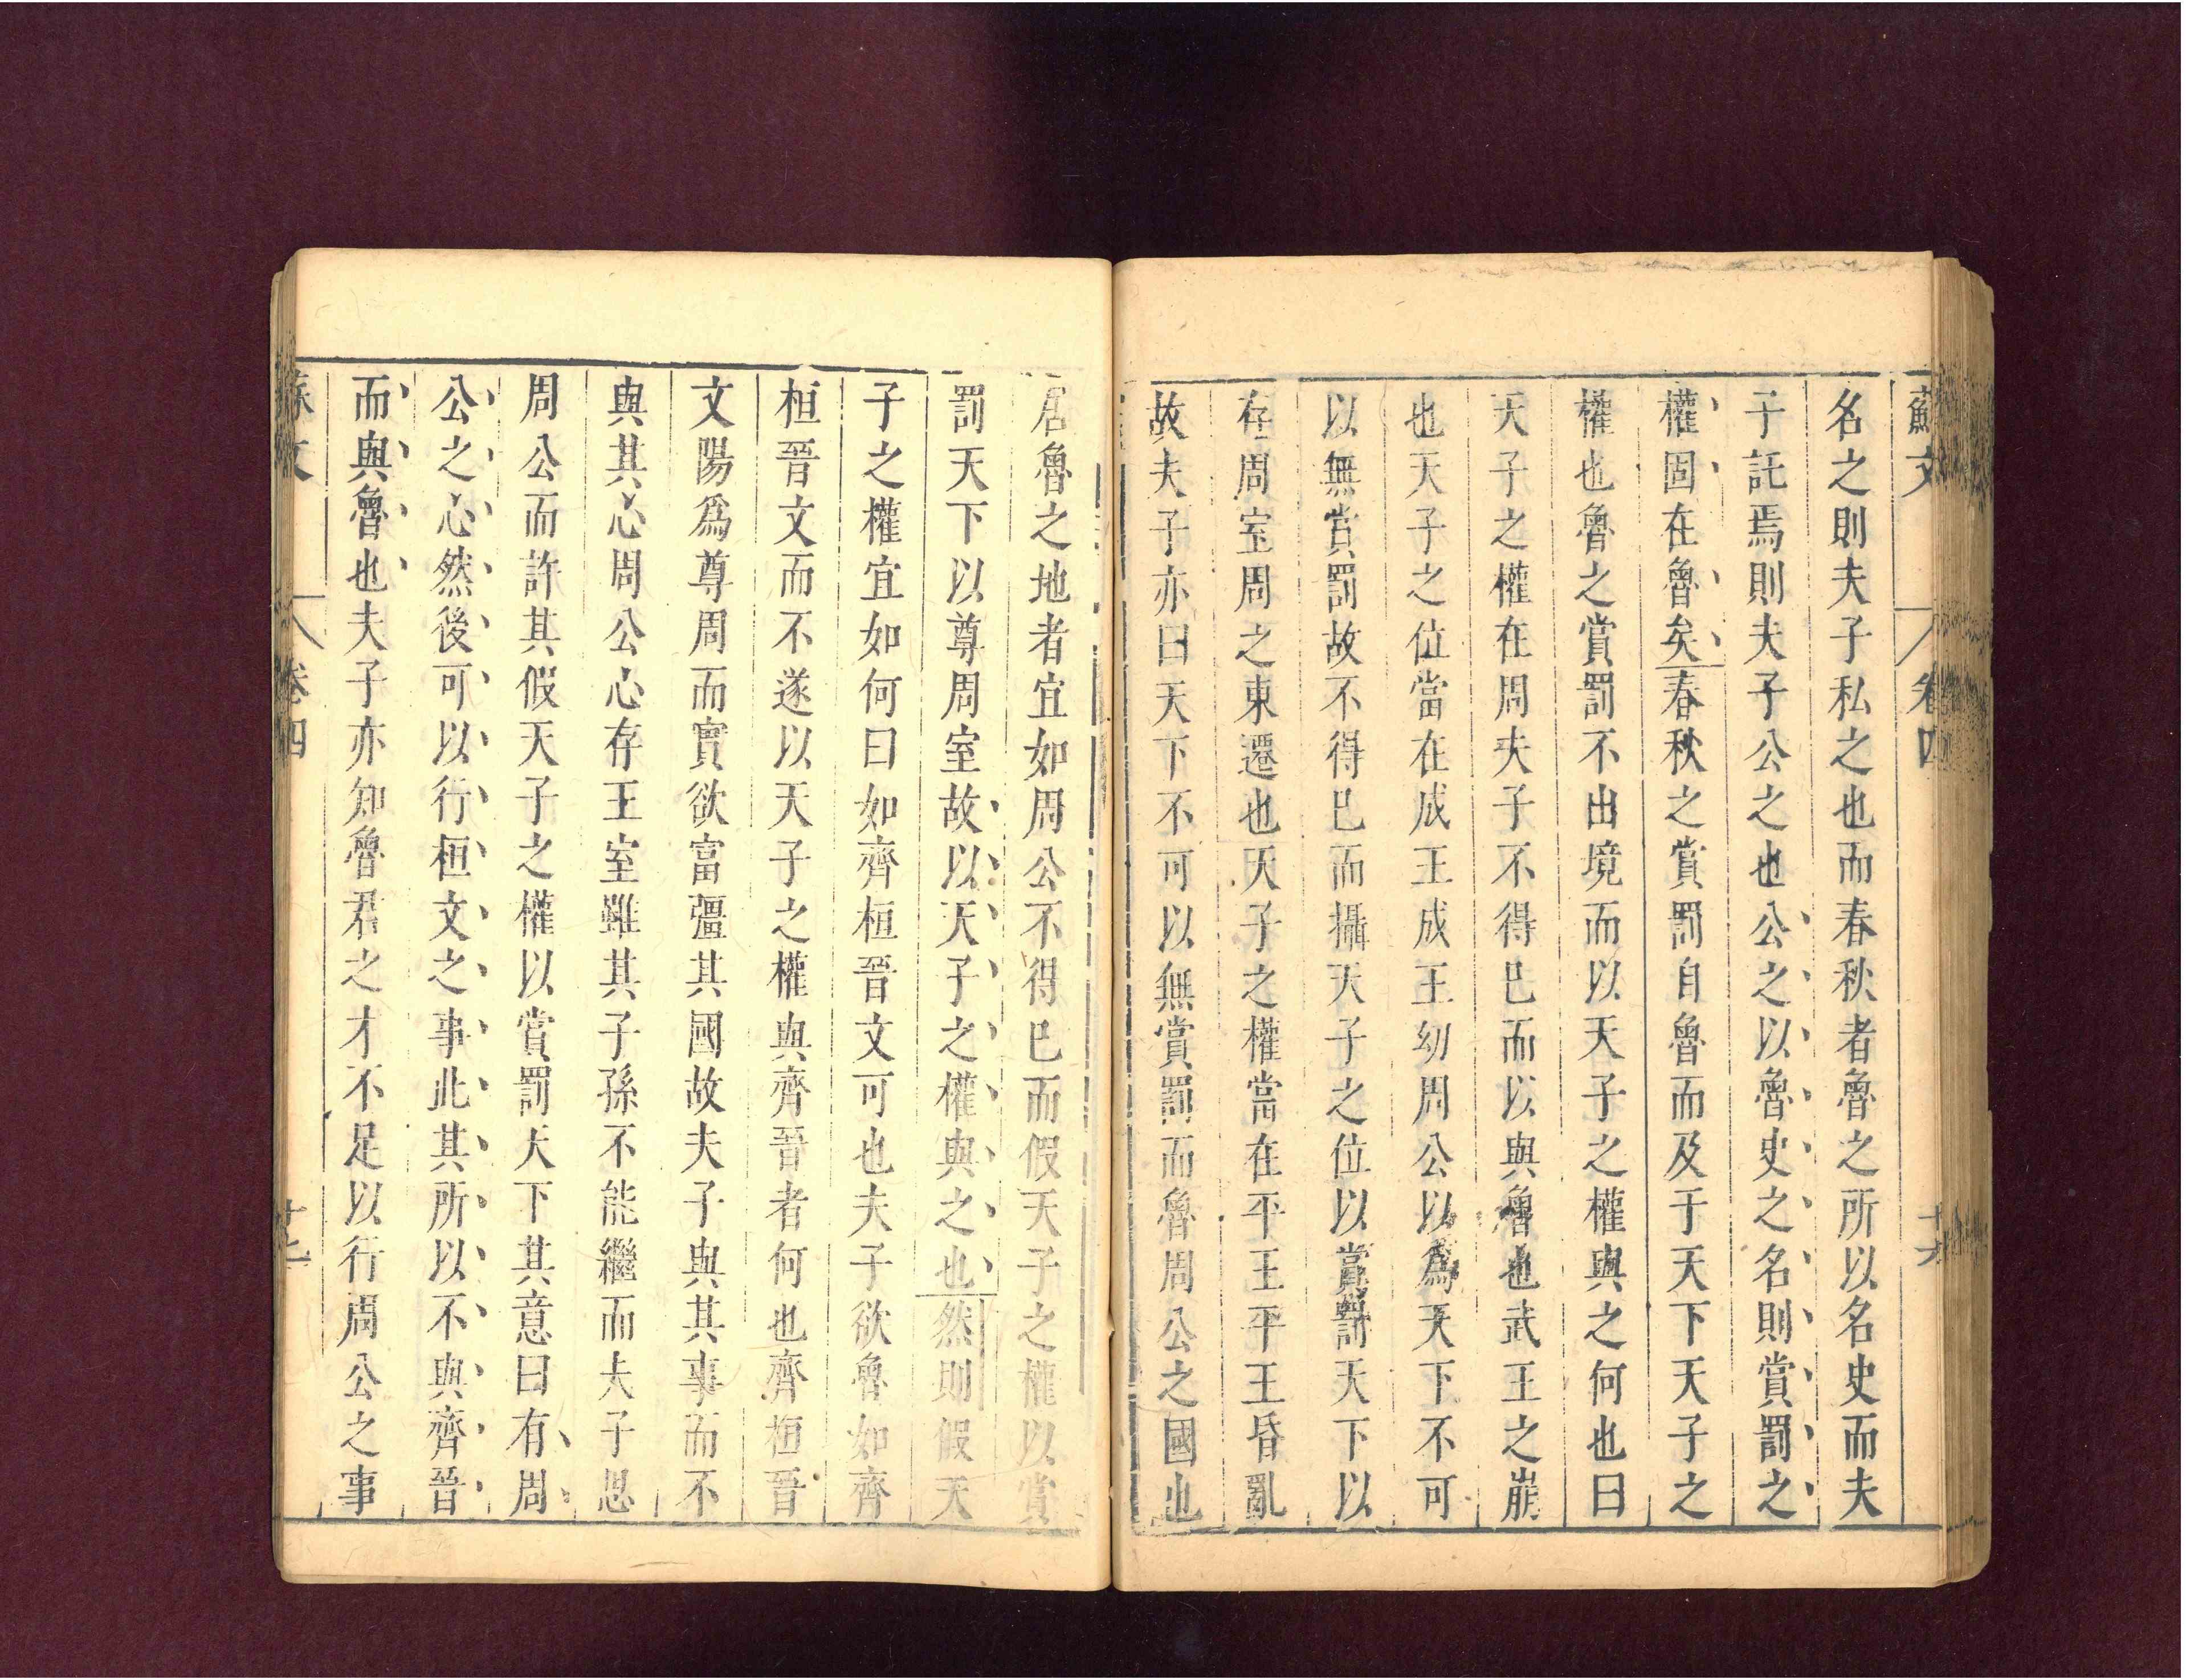 蘇文
卷四
名之則夫子私之也而春秋者魯之所以名史而夫
子託焉則夫子公之也公之以魯史之名則賞罰之
權固在魯矣春秋之賞罰自魯而及于天下天子之
權也魯之賞罰不出境而以天子之權與之何也曰
天子之權在周夫子不得已而以與魯也武王之崩
也天子之位當在成王成王幼周公以為天下不可
以無賞罰故不得已而攝天子之位以賞罰天下以
存周室周之東遷也天子之權當在平王平王昏亂
故夫子亦曰天下不可以無賞罰而魯周公之國也
居魯之地者宜如周公不得已而假天子之權以賞
罰天下以尊周室故以天子之權與之也然則假天
子之權宜如何曰如齊桓晉文可也夫子欲魯如齊
桓晉文而不遂以天子之權與齊晉者何也齊桓晉
文陽為尊周而實欲富彊其國故夫子與其事而不
與其心周公心存王室雖其子孫不能繼而夫子思
周公而許其假天子之權以賞罰天下其意曰有周
公之心然後可以行桓文之事此其所以不與齊晉
而與魯也夫子亦知魯君之才不足以行周公之事
蘇文
卷四